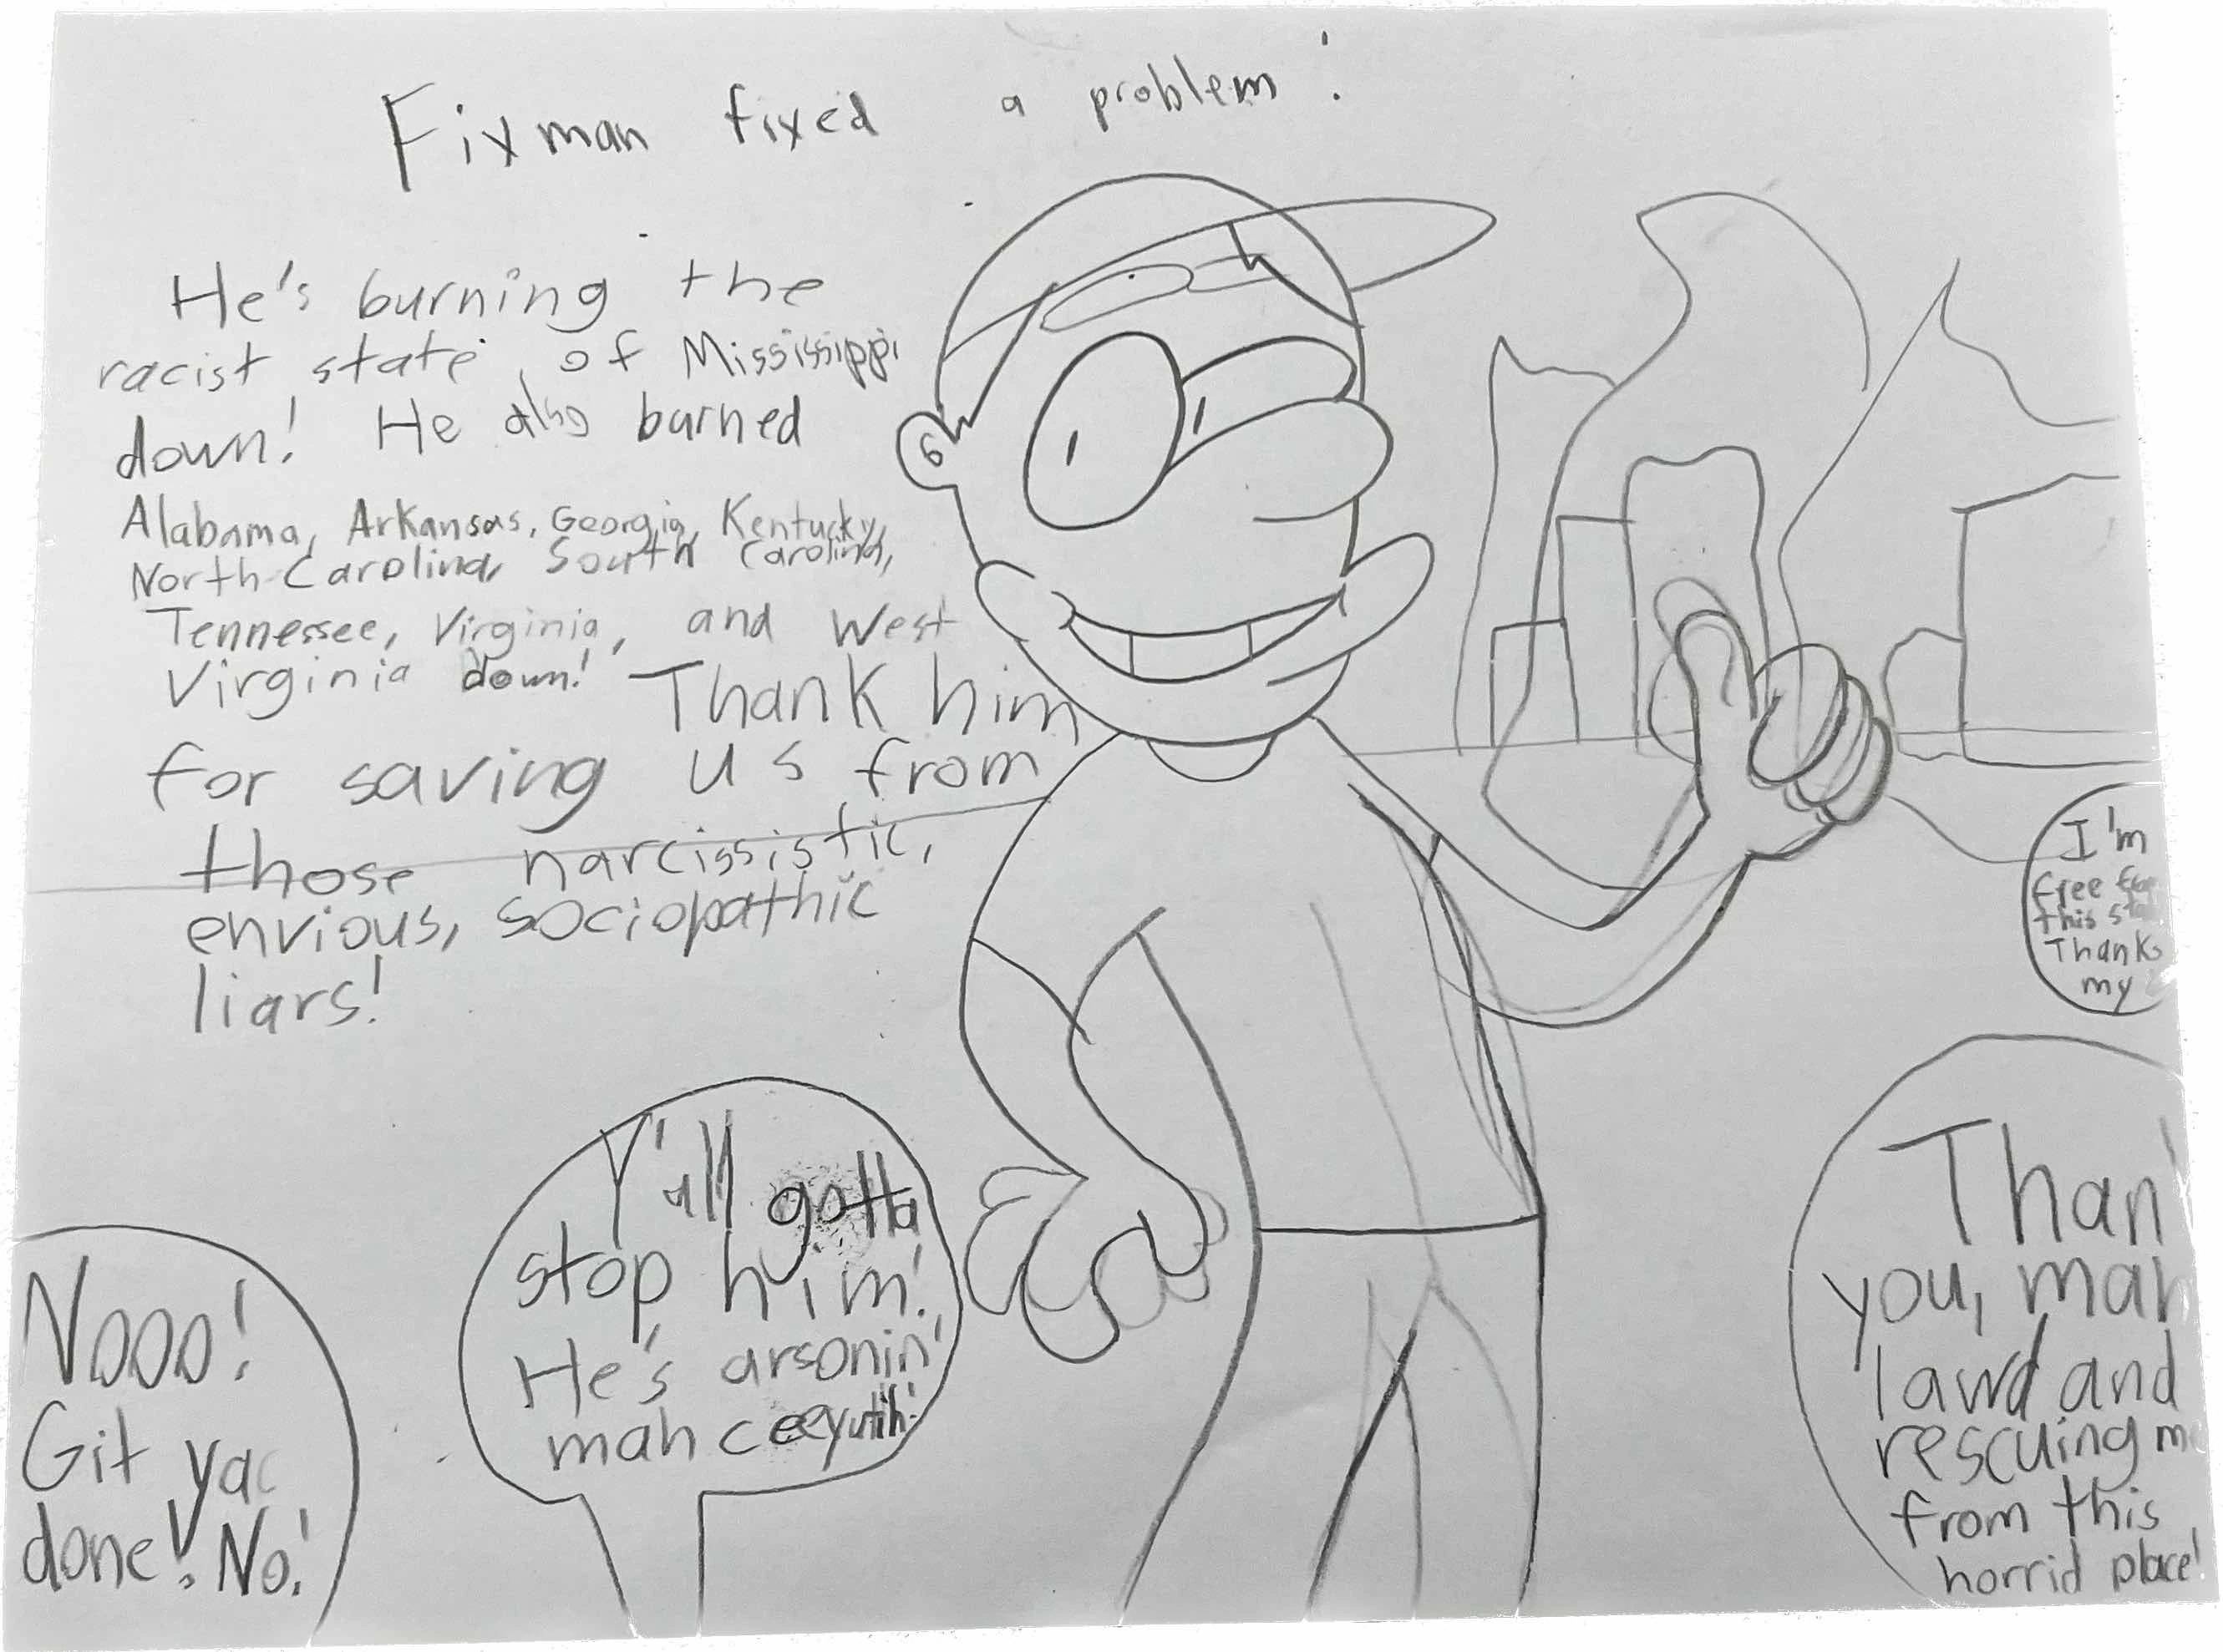 Fixman fixed a problem!
He's burning the
racist state of Mississippi
down! He also burned
Alabama, Arkansas, Georgia, Kentucky,
North Carolina, South Carolina,
Tennessee, Virginia, and West
Virginia down! Thank him
for saving us from
those narcissistic,
envious, sociopathic
liars!
I'm
free
this
Thanks
my
Y'all gotta
stop him!
He's arsonin'
mah
Nooo!
Git
done! No!
Than
you, mah
lawd and
rescuing me
from this
horrid place!